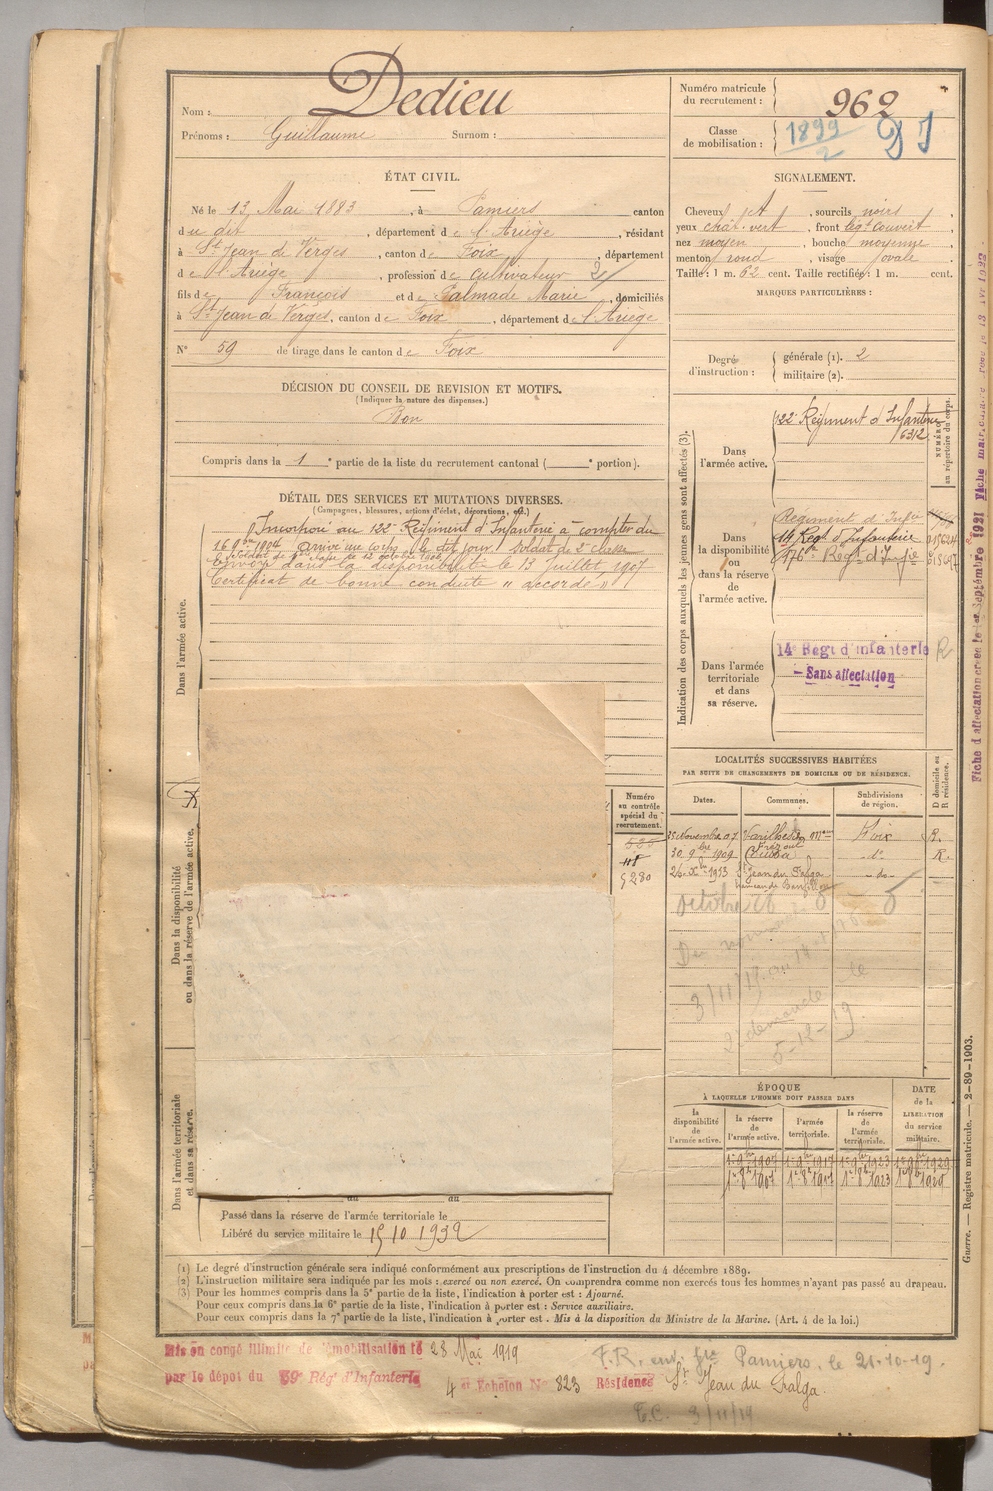 Nom : Dedieu
Prénoms : Guillaume Surnom :
Numéro matricule du recrutement : 962
Classe de mobilisation : 1899/2
ÉTAT CIVIL.
Né le 13 Mai 1883, à Pamiers canton
du dit, département de l'Ariège, résidant
à St Jean de Verges, canton de Foix, département
de l'Ariège, profession de cultivateur
fils de François et de Galmade Marie, domiciliés
à St Jean de Verges, canton de Foix, département de l'Ariège
N° 59 de tirage dans le canton de Foix
SIGNALEMENT.
Cheveux et, sourcils noirs,
yeux chât. vert, front légt couvert,
nez moyen, bouche moyenne,
menton rond, visage ovale.
Taille : 1 m. 62 cent. Taille rectifiée : 1 m. cent.
MARQUES PARTICULIÈRES :
Degré d'instruction : générale (1). 2
militaire (2).
DÉCISION DU CONSEIL DE REVISION ET MOTIFS.
(Indiquer la nature des dispenses.)
Bon
Compris dans la 1e partie de la liste du recrutement cantonal ( e portion).
DÉTAIL DES SERVICES ET MUTATIONS DIVERSES.
(Campagnes, blessures, actions d'éclat, décorations, etc.)
Incorporé au 122e Régiment d'Infanterie à compter du
16 9bre 1904 arrivé au corps le dit jour soldat de 2e classe
Envoyé dans la disponibilité le 13 Juillet 1907
Certificat de bonne conduite "accordé"
Dans l'armée active.
Dans la disponibilité ou dans la réserve de l'armée active.
Dans l'armée territoriale et dans sa réserve.
Indication des corps auxquels les jeunes gens sont affectés (3).
NUMÉRO au répertoire du corps.
Dans l'armée active.
122e Régiment d'Infanterie
6312
Dans la disponibilité ou dans la réserve de l'armée active.
Régiment d'Infie
14 Regt d'Infanterie
176e Regt d'Infie
Dans l'armée territoriale et dans sa réserve.
14e Regt d'infanterie R
Sans affectation
Numéro au contrôle spécial du recrutement.
LOCALITÉS SUCCESSIVES HABITÉES
PAR SUITE DE CHANGEMENTS DE DOMICILE OU DE RÉSIDENCE.
Dates. Communes. Subdivisions de région. D domicile ou R résidence.
25 Novembre 07 Varilhes Foix R.
30 9bre 1909 do R.
26 Xbre 1913 St Jean du Falga do
octobre
3/11/19
demande le
5-12-19
ÉPOQUE
À LAQUELLE L'HOMME DOIT PASSER DANS
la disponibilité de l'armée active. la réserve de l'armée active. l'armée territoriale. la réserve de l'armée territoriale.
DATE de la LIBÉRATION du service militaire.
1er 9bre 1907 1er 9bre 1917 1er 9bre 1923 1er 9bre 1929
1er 8bre 1907 1er 8bre 1917 1er 8bre 1923 1er 8bre 1929
au au
Passé dans la réserve de l'armée territoriale le
Libéré du service militaire le 15 10 1932
(1) Le degré d'instruction générale sera indiqué conformément aux prescriptions de l'instruction du 4 décembre 1889.
(2) L'instruction militaire sera indiquée par les mots : exercé ou non exercé. On comprendra comme non exercés tous les hommes n'ayant pas passé au drapeau.
(3) Pour les hommes compris dans la 5e partie de la liste, l'indication à porter est : Ajourné.
Pour ceux compris dans la 6e partie de la liste, l'indication à porter est : Service auxiliaire.
Pour ceux compris dans la 7e partie de la liste, l'indication à porter est . Mis à la disposition du Ministre de la Marine. (Art. 4 de la loi.)
Mis en congé illimité de démobilisation le 28 Mai 1919
par le dépot du 59e Rég' d'Infanterie
4 et Echelon N° 823 Résidence St Jean du Falga.
F.R. env. gie Pamiers. le 21-10-19.
3/11/19
Guerre. — Registre matricule. — 2-89-1903.
Fiche d'affectation créée le 1er Septembre 1921